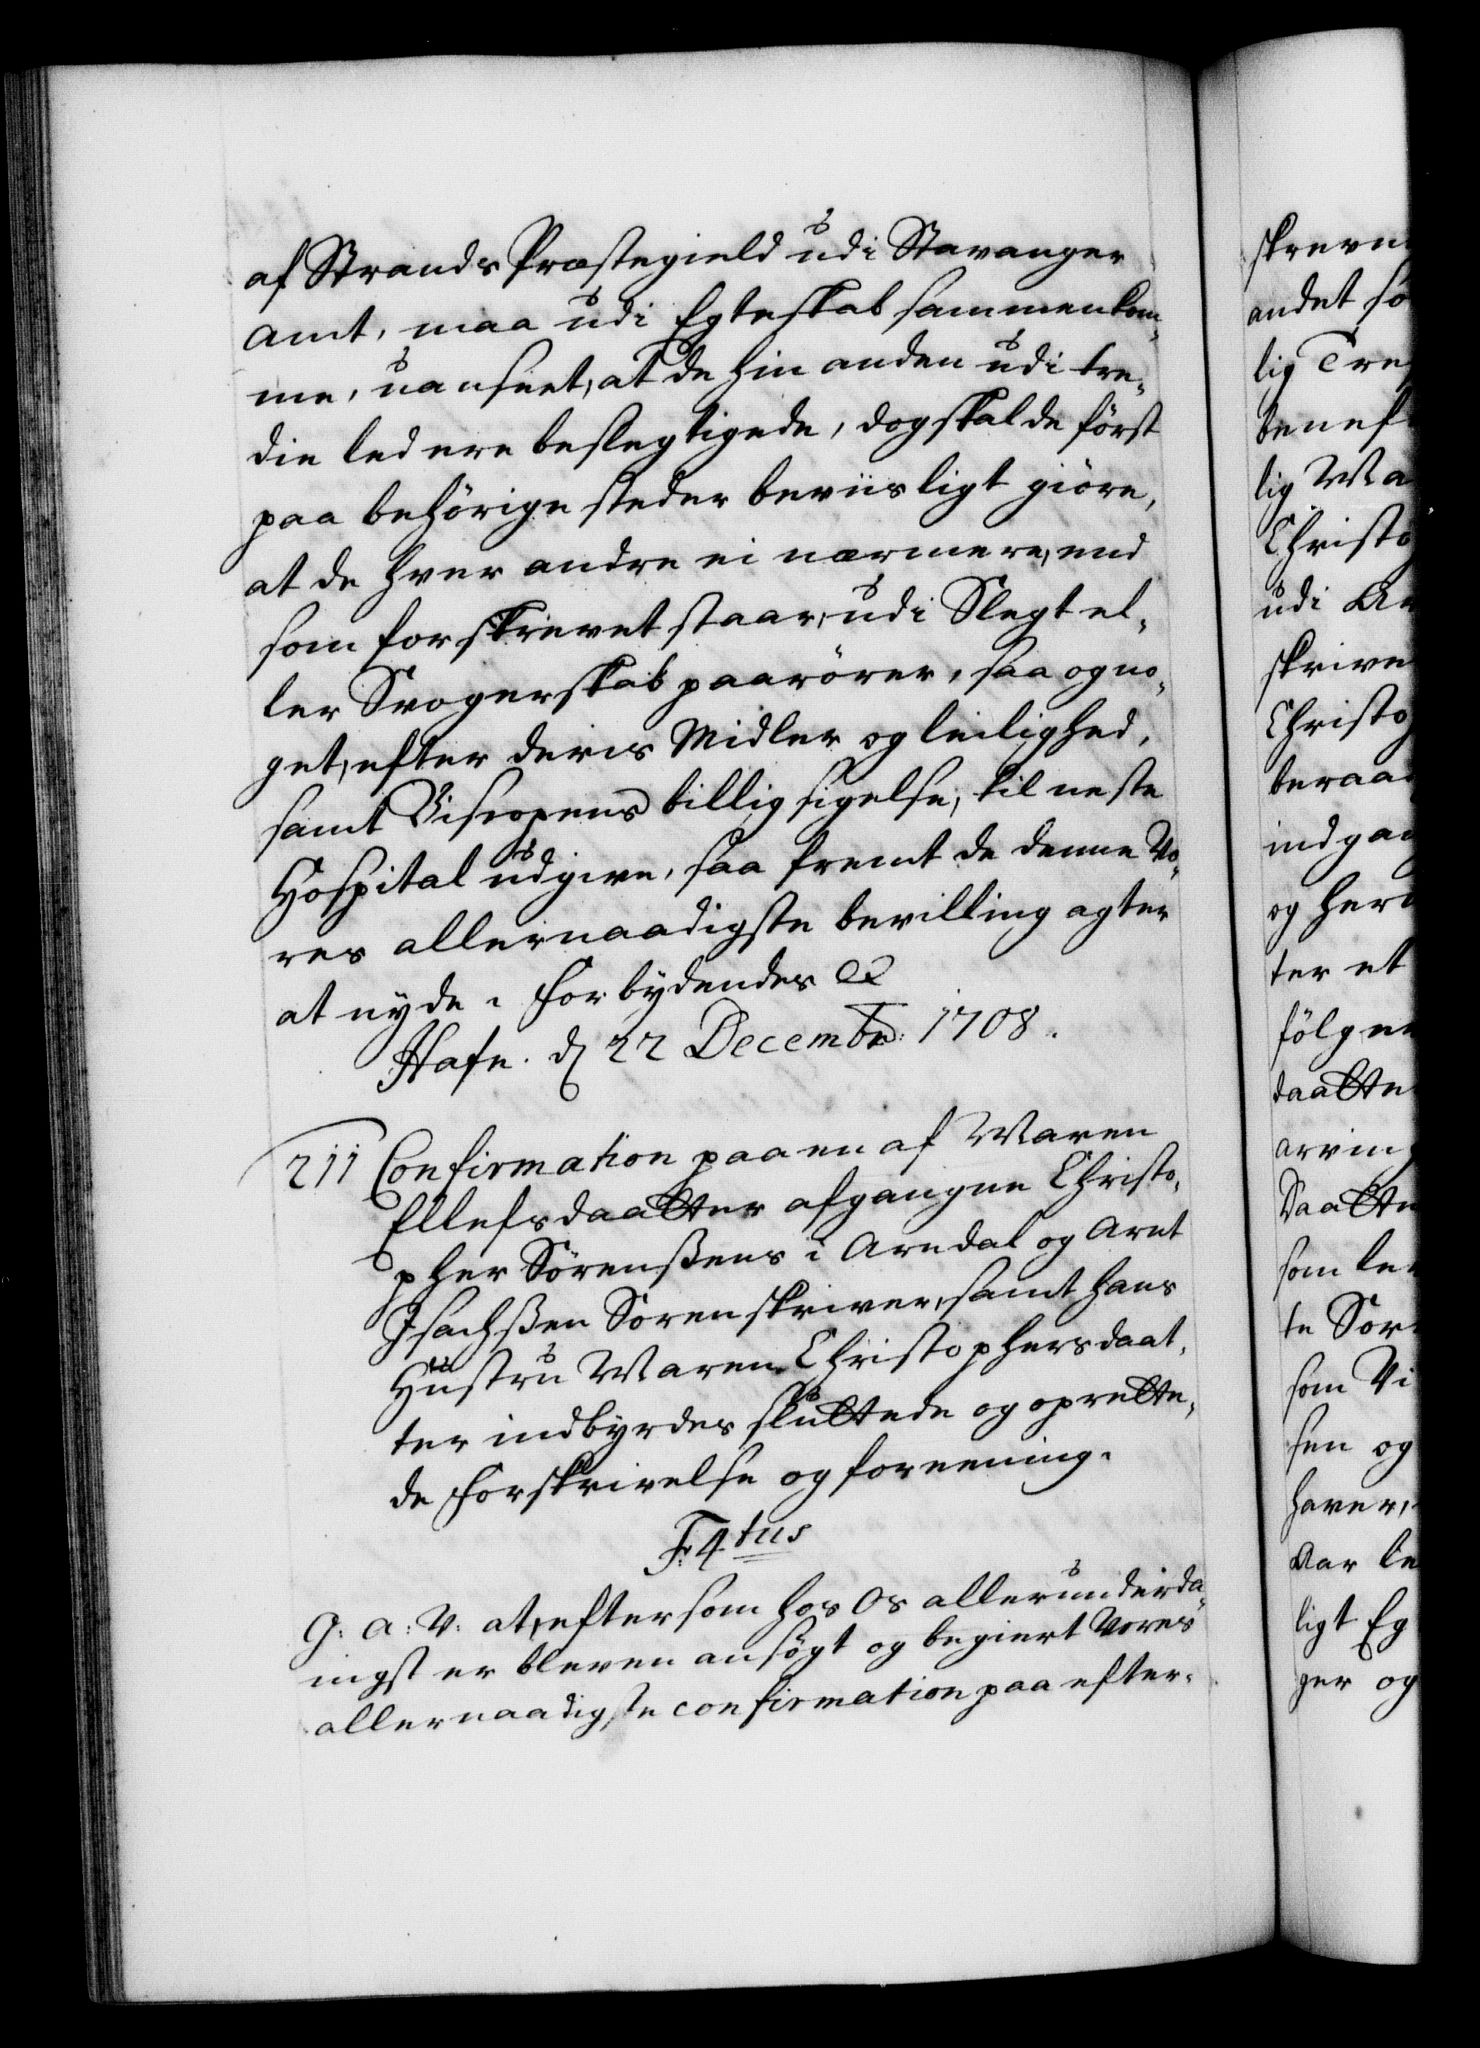 af Strands Præstegield udi Stavanger
Amt, maa udi Egteskab sammenkom-
me, uanseet, at de hinanden udi tre-
die led ere beslegtigede, dog skal de først
paa behörige steder beviisligt giöre,
at de hver andre ei nærmere, end
som forskrevet staar, udi Slegt el-
ler Svogerskab paarörer, saa og no-
get, efter deris Midler og leilighed,
samt Biscopens billig sigelse, til neste
Hospital udgive, saa fremt de denne Vo-
res allernaadigste bevilling agter
at nyde. Forbydendes &c
Hafn. d 22 Decembr: 1708.
211 Confirmation paa en af Maren
Ellefsdaatter afgangne Christo-
pher Sörenßens i Arndal og Arnt
Isachßen Sorenskriver, samt hans
Hustru Maren Christophersdaat-
ter indbyrdes sluttede og oprette-
de Forskrivelse og foreening.
F: 4tus
G: A: V: at, eftersom hos Os allerunderda-
nigst er bleven ansögt og begiert Vores
allernaadigste confirmation paa efter-
skrevn
andet sö
lig Tre
benef
lig Ma
Christo
udi Ar
skrive
Christo
beraa
indgaa
og her
ter et
fölgen
daatte
arving
Daatte
som le
te Sor
som Vi
sen og
haver,
Aar le
ligt Eg
ger og